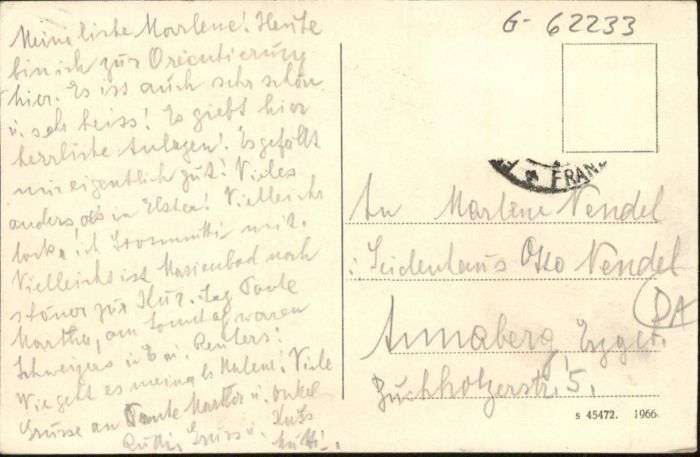 Meine liebe Marlene! Heute
bin ich zur Orientierung
hier. Es ist auch sehr schön
u. sehr heiss! Es giebt hier
herrliche Anlagen! Es gefällt
mir eigentlich gut! Vieles
anders, als in Elster! Vielleicht
locke ich Grossmutti mit.
Vielleicht ist Marienbad noch
schöner zur Kur. Sag Tante
Martha, am Sonntag waren
Schweigers
Wie geht es meina Helene? Viele
Grüsse an Tante Martha u. Onkel
Rudi, Gruss u. Kuss
Mutti.
G- 62233
FRAN
An Marlene Nendel
Seidenhaus Otto Nendel
Annaberg, Erzgeb.
DA
Buchholzerstr. 5.
s 45472. 1966